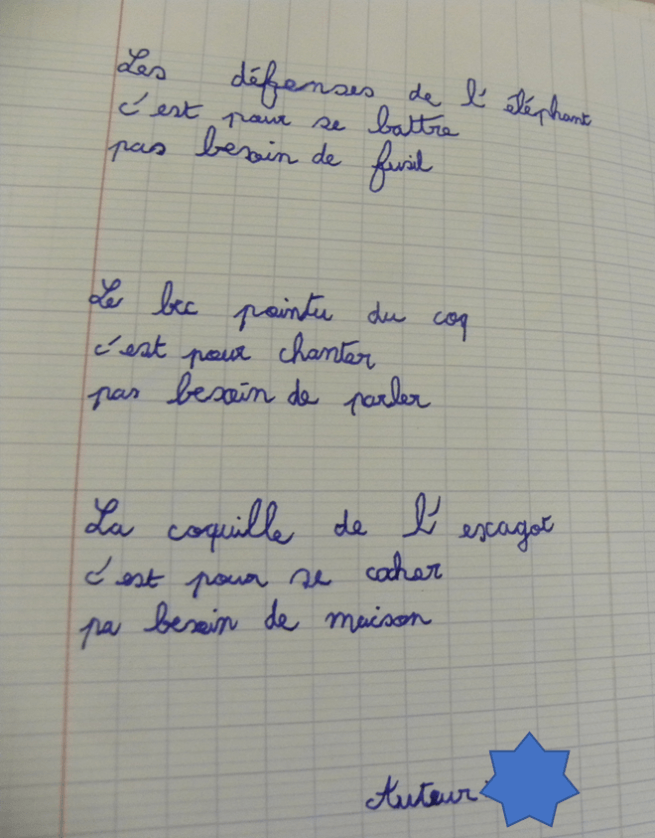 Les défenses de l'éléphant
c'est pour se battre
pas besoin de fusil
Le bec pointu du coq
c'est pour chanter
pas besoin de parler
La coquille de l'escagot
c'est pour se cacher
pa besoin de maison
Auteur :